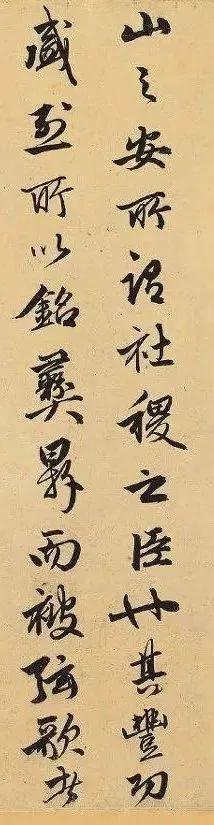 山之安所谓社稷之臣也其豐功
盛烈所以銘彝鼎而被弦歌者